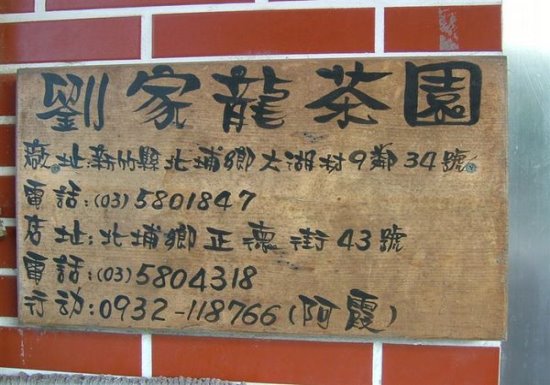 劉家龍茶園
廠址:新竹縣北埔鄉大湖村9鄰34號
電話:(03)5801847
店址:北埔鄉正德街43號
電話:(03)5804318
行动:0932-118766(阿霞)